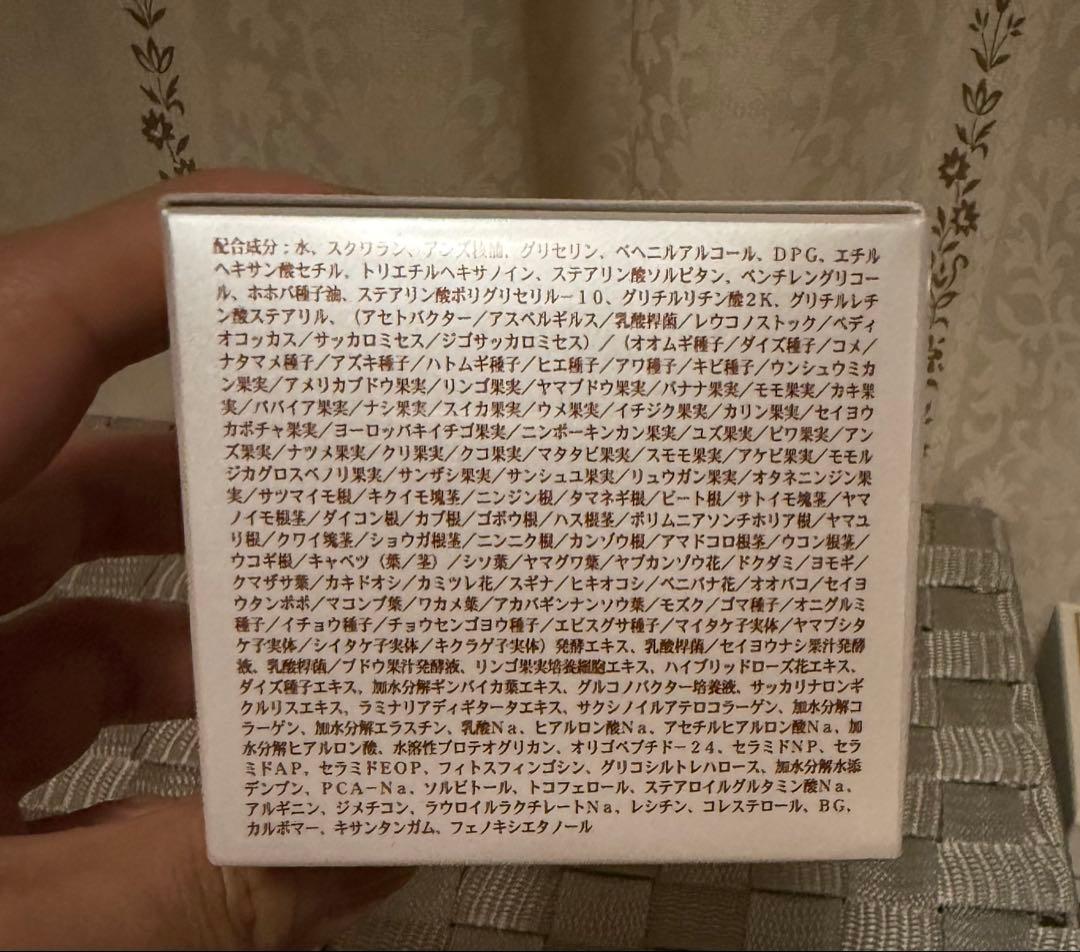 配合成分：水、スクワラン、アンズ核油、グリセリン、ベヘニルアルコール、DPG、エチル
ヘキサン酸セチル、トリエチルヘキサノイン、ステアリン酸ソルビタン、ペンチレングリコー
ル、ホホバ種子油、ステアリン酸ポリグリセリル－10、グリチルリチン酸2K、グリチルレチ
ン酸ステアリル、（アセトバクター／アスペルギルス／乳酸桿菌／レウコノストック／ペディ
オコッカス／サッカロミセス／ジゴサッカロミセス）／（オオムギ種子／ダイズ種子／コメ／
ナタマメ種子／アズキ種子／ハトムギ種子／ヒエ種子／アワ種子／キビ種子／ウンシュウミカ
ン果実／アメリカブドウ果実／リンゴ果実／ヤマブドウ果実／バナナ果実／モモ果実／カキ果
実／パパイア果実／ナシ果実／スイカ果実／ウメ果実／イチジク果実／カリン果実／セイヨウ
カボチャ果実／ヨーロッパキイチゴ果実／ニンポーキンカン果実／ユズ果実／ビワ果実／アン
ズ果実／ナツメ果実／クリ果実／クコ果実／マタタビ果実／スモモ果実／アケビ果実／モモル
ジカグロスベノリ果実／サンザシ果実／サンシュユ果実／リュウガン果実／オタネニンジン果
実／サツマイモ根／キクイモ塊茎／ニンジン根／タマネギ根／ビート根／サトイモ塊茎／ヤマ
ノイモ根茎／ダイコン根／カブ根／ゴボウ根／ハス根茎／ポリムニアソンチホリア根／ヤマユ
リ根／クワイ塊茎／ショウガ根茎／ニンニク根／カンゾウ根／アマドコロ根茎／ウコン根茎／
ウコギ根／キャベツ（葉／茎）／シソ葉／ヤマグワ葉／ヤブカンゾウ花／ドクダミ／ヨモギ／
クマザサ葉／カキドオシ／カミツレ花／スギナ／ヒキオコシ／ベニバナ花／オオバコ／セイヨ
ウタンポポ／マコンブ葉／ワカメ葉／アカバギンナンソウ葉／モズク／ゴマ種子／オニグルミ
種子／イチョウ種子／チョウセンゴヨウ種子／エビスグサ種子／マイタケ子実体／ヤマブシタ
ケ子実体／シイタケ子実体／キクラゲ子実体）発酵エキス、乳酸桿菌／セイヨウナシ果汁発酵
液、乳酸桿菌／ブドウ果汁発酵液、リンゴ果実培養細胞エキス、ハイブリッドローズ花エキス、
ダイズ種子エキス、加水分解ギンバイカ葉エキス、グルコノバクター培養液、サッカリナロンギ
クルリスエキス、ラミナリアディギタータエキス、サクシノイルアテロコラーゲン、加水分解コ
ラーゲン、加水分解エラスチン、乳酸Na、ヒアルロン酸Na、アセチルヒアルロン酸Na、加
水分解ヒアルロン酸、水溶性プロテオグリカン、オリゴペプチド－24、セラミドNP、セラ
ミドAP、セラミドEOP、フィトスフィンゴシン、グリコシルトレハロース、加水分解水添
デンプン、PCA－Na、ソルビトール、トコフェロール、ステアロイルグルタミン酸Na、
アルギニン、ジメチコン、ラウロイルラクチレートNa、レシチン、コレステロール、BG、
カルボマー、キサンタンガム、フェノキシエタノール